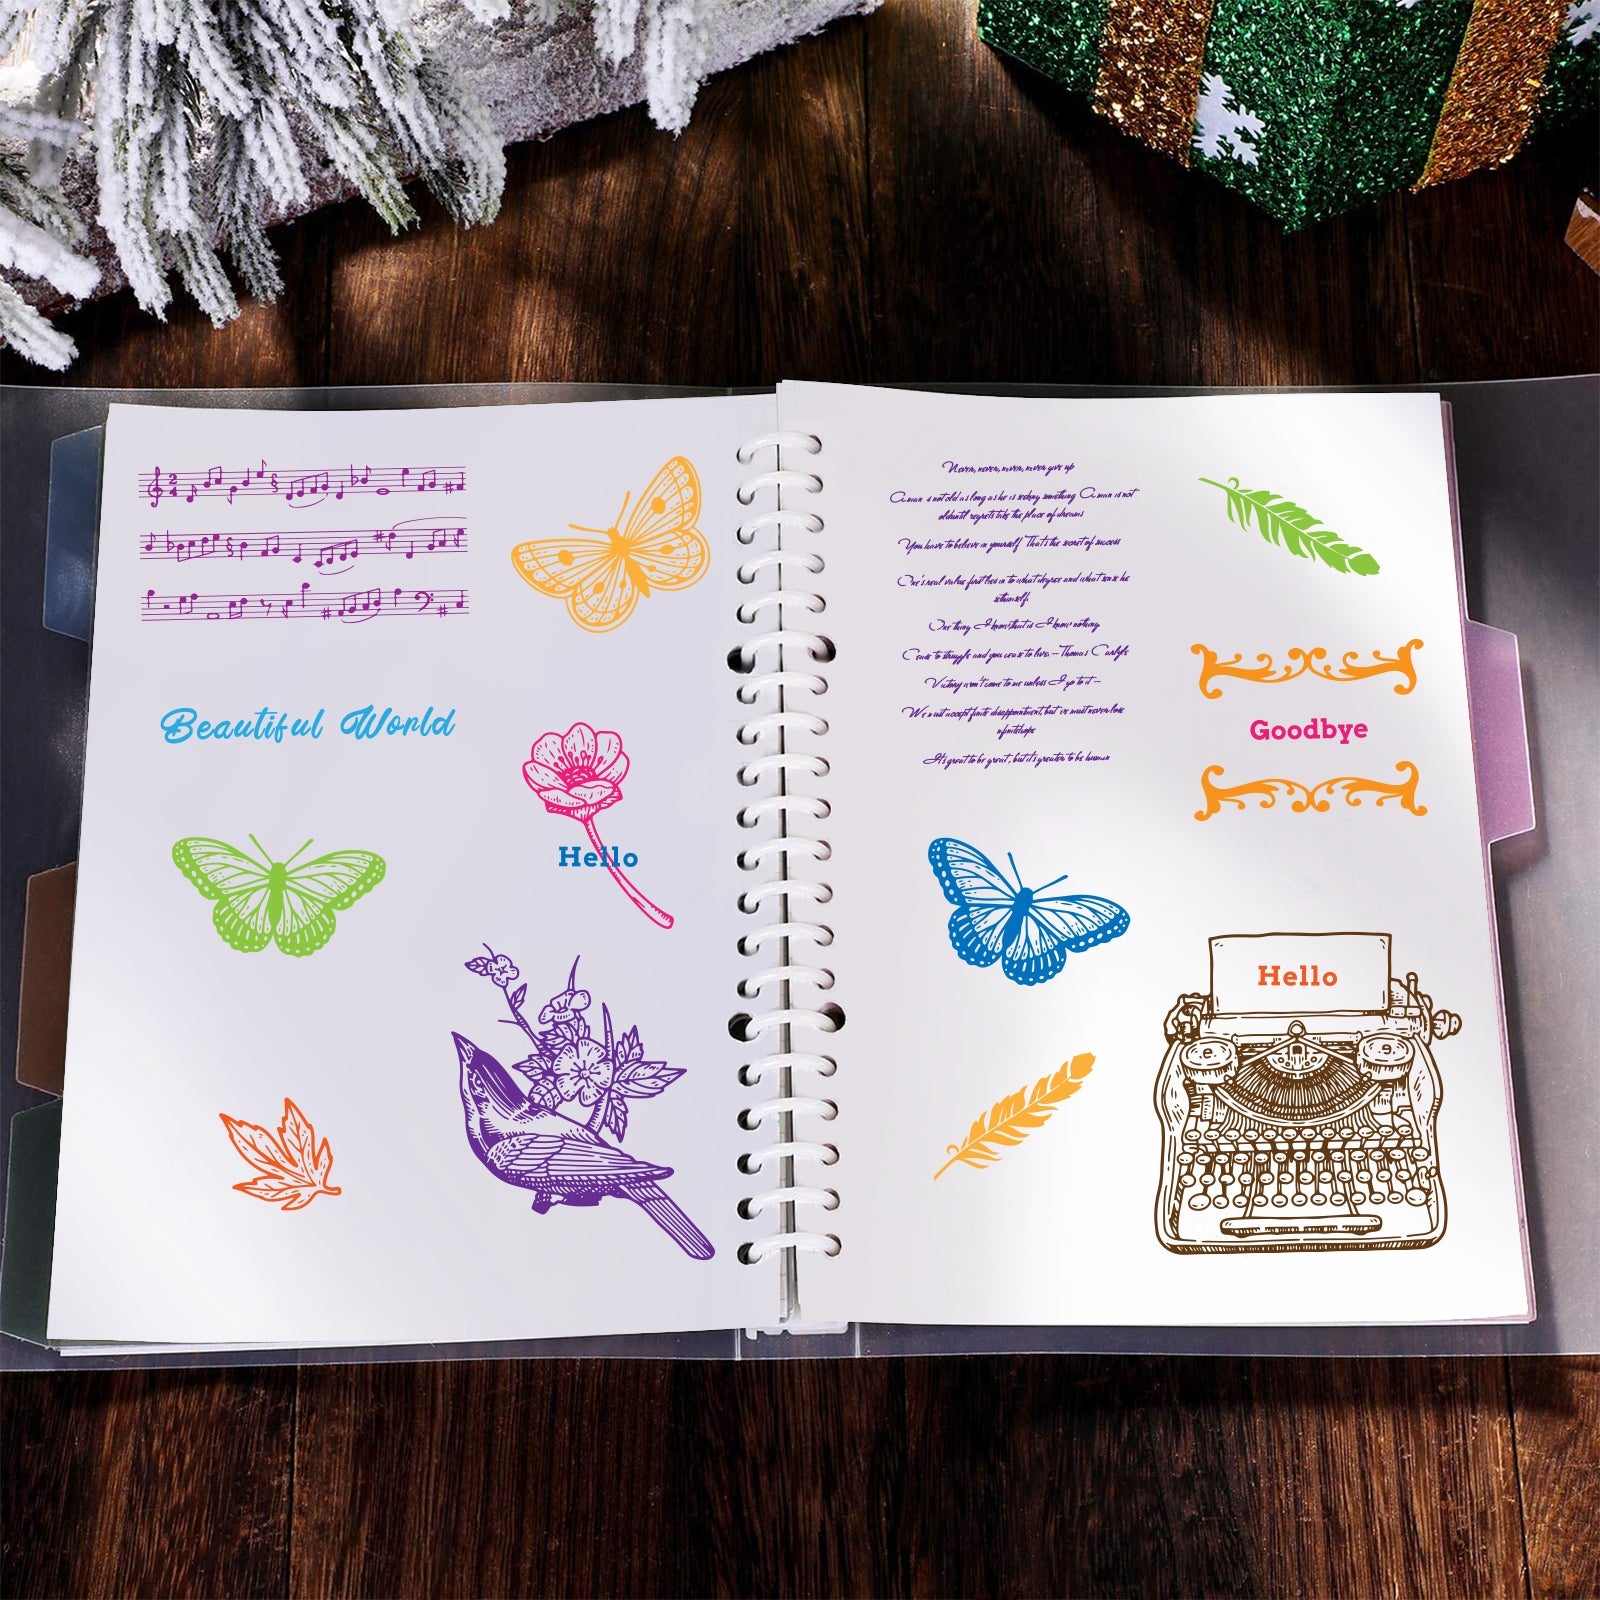 2
4
Beautiful World
Hello
Never, never, never, never give up
A man is not old as long as he is seeking something A man is not
old until regrets take the place of dreams
You have to believe in yourself That's the secret of success
One's real value first lies in to what degree and what sense he
set himself
One thing I know, that is I know nothing
Cease to struggle and you cease to live -- Thomas Carlyle
Victory won't come to me unless I go to it --
We must accept finite disappointment, but we must never lose
infinite hope
It's great to be great, but it's greater to be human
Goodbye
Hello